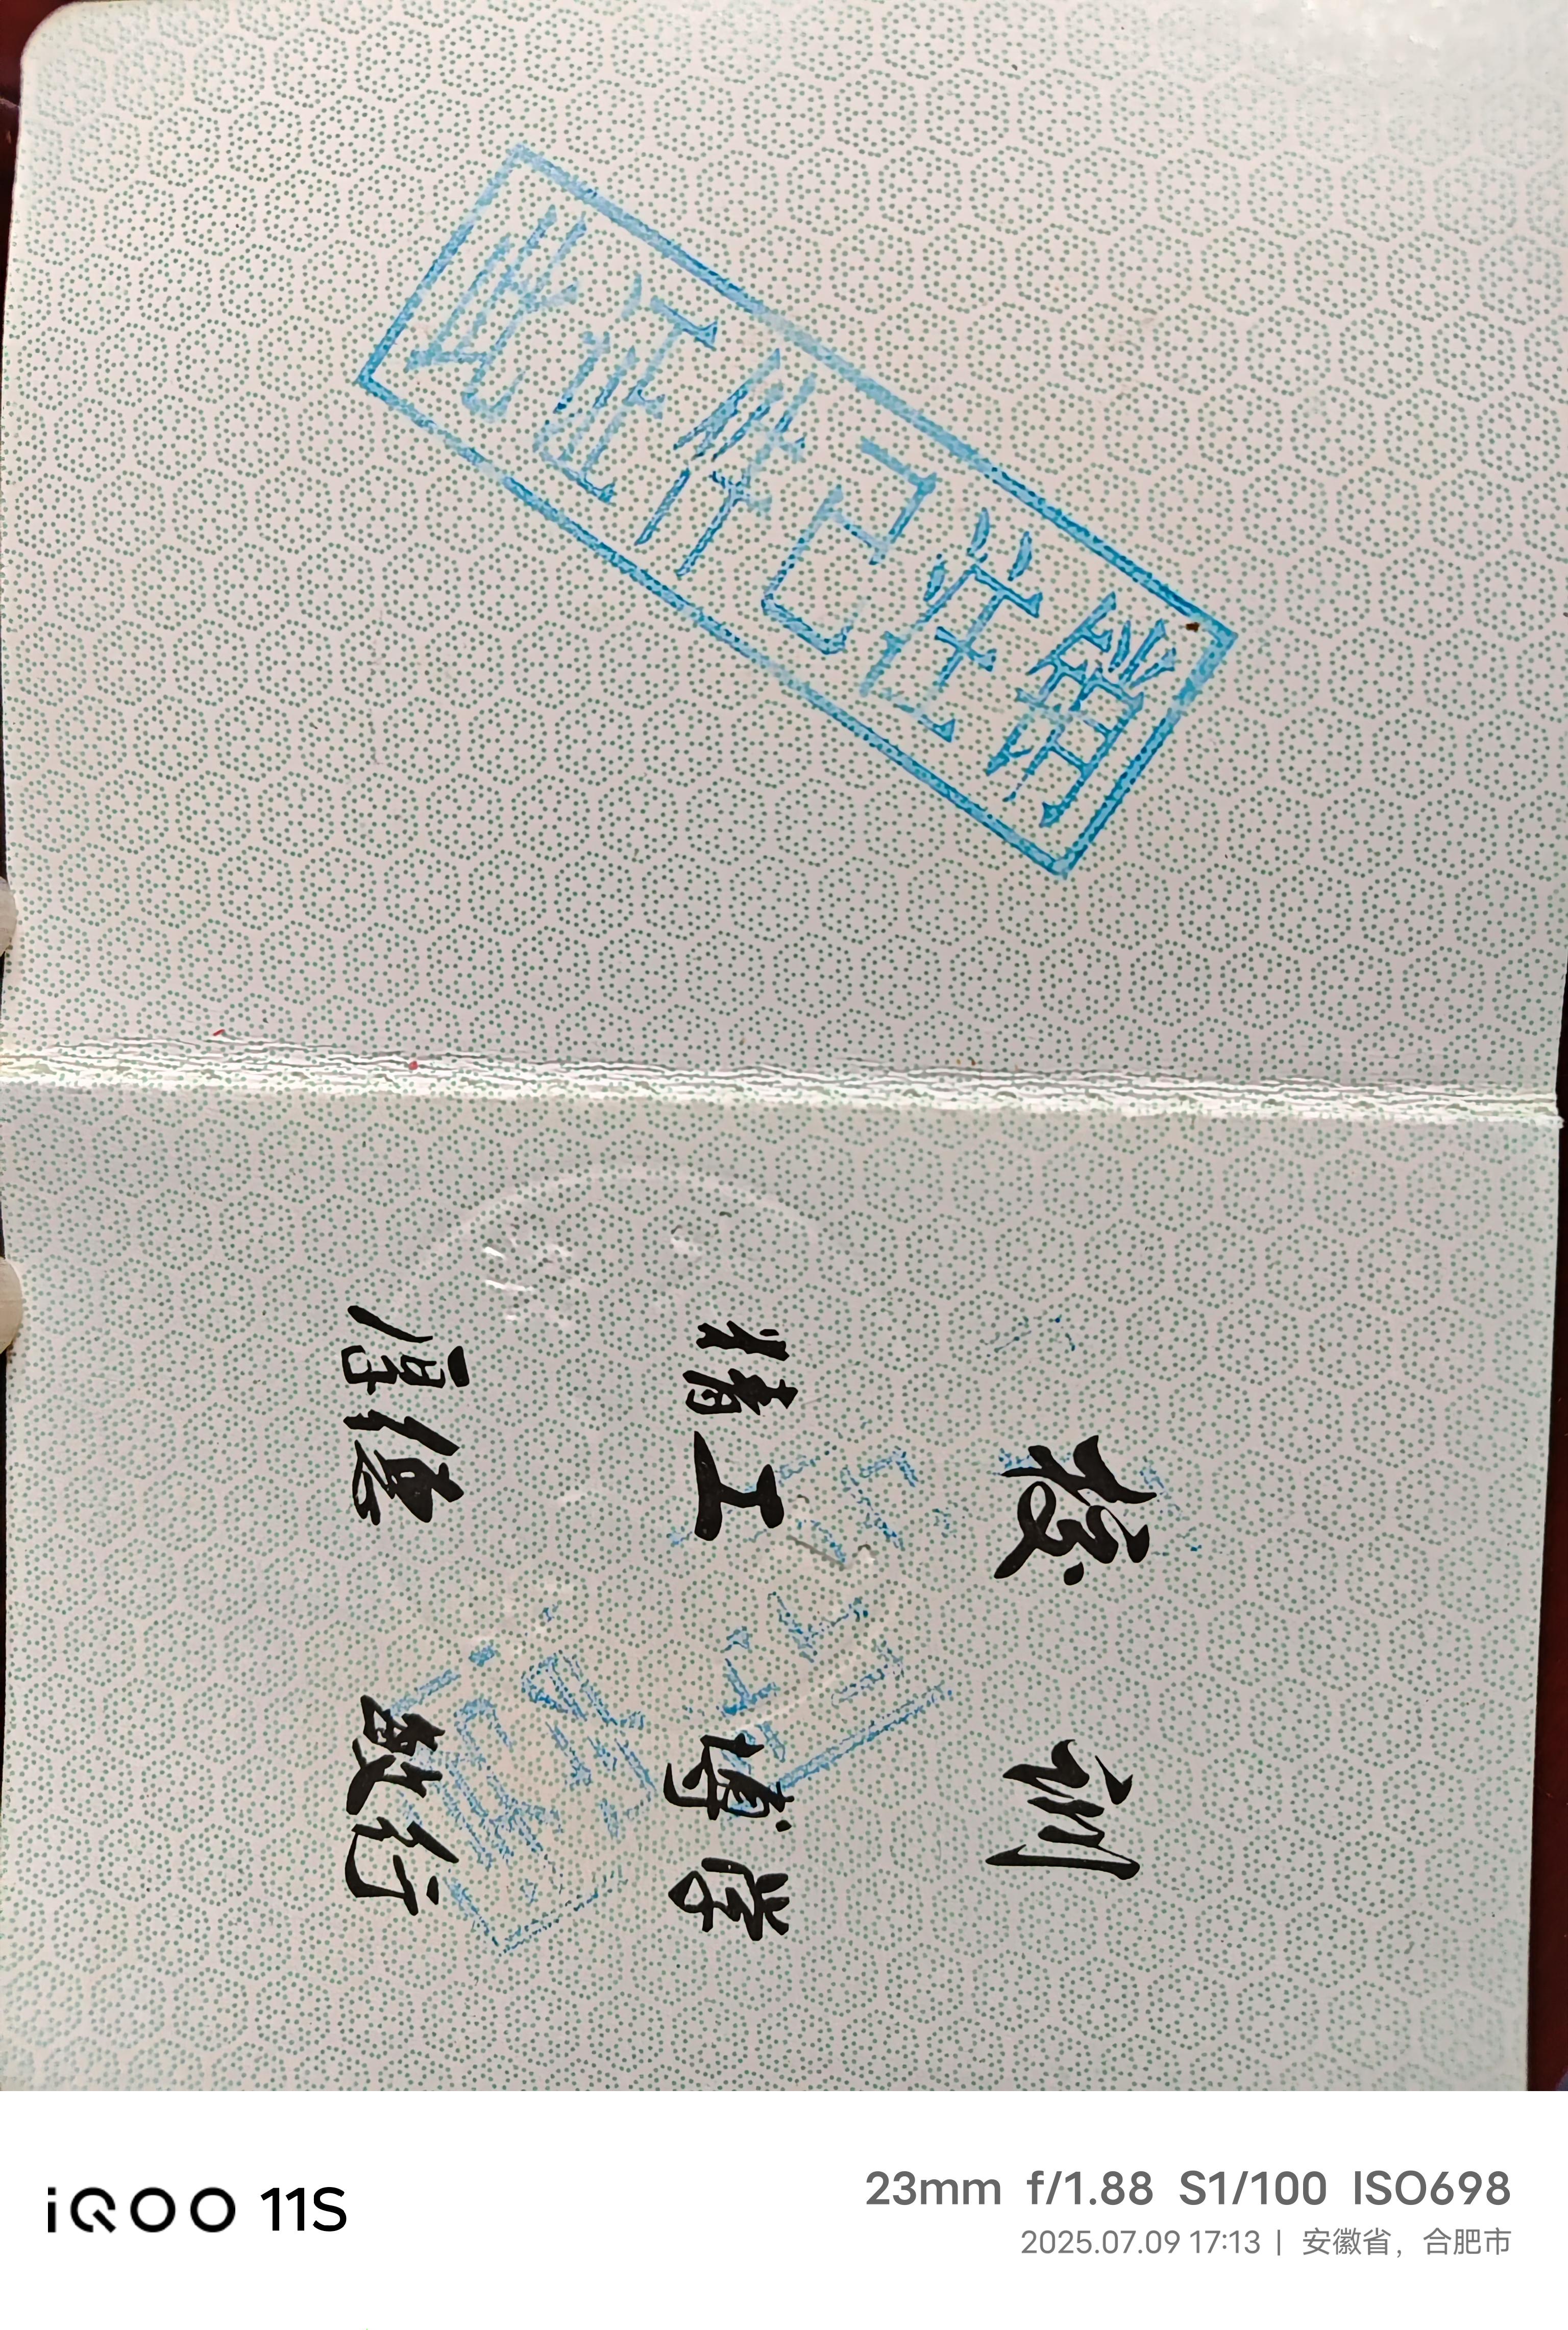 此证件已注销
校 训
精工 博学
厚德 敏行
iQOO 11S
23mm f/1.88 S1/100 ISO698
2025.07.09 17:13 | 安徽省，合肥市